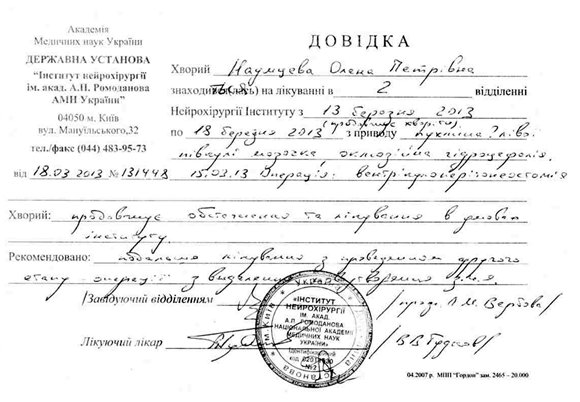 Академія
Медичних наук України
ДЕРЖАВНА УСТАНОВА
"Інститут нейрохірургії
ім. акад. А.П. Ромоданова
АМН України"
04050 м. Київ
вул. Мануїльського,32
тел./факс (044) 483-95-73
від 18.03 2013 № 131448
ДОВІДКА
Хворий Наумцева Олена Петрівна
знаходився(лась) на лікуванні в 2 відділенні
Нейрохірургії Інституту з 13 березня 2013
(продовжує хворіти)
по 18 березня 2013 з приводу пухлина лівої
півкулі мозочка, оклюзійна гідроцефалія.
15.03.13 Операція: вентрикулоперитонеостомія
Хворий: продовжує обстеження та лікування в умовах
інституту.
Рекомендовано: подальше лікування з проведенням другого
етапу операції з видалення утворення з.ч.я.
Завідуючий відділенням /проф. Л.М. Вербова/
Лікуючий лікар
УКРАЇНА
м. КИЇВ
«ІНСТИТУТ
НЕЙРОХІРУРГІЇ
ІМ. АКАД.
А.П. РОМОДАНОВА
НАЦІОНАЛЬНОЇ АКАДЕМІЇ
МЕДИЧНИХ НАУК
УКРАЇНИ»
Ідентифікаційний
код
№2
04.2007 р. МПП "Гордон" зам. 2465 – 20.000